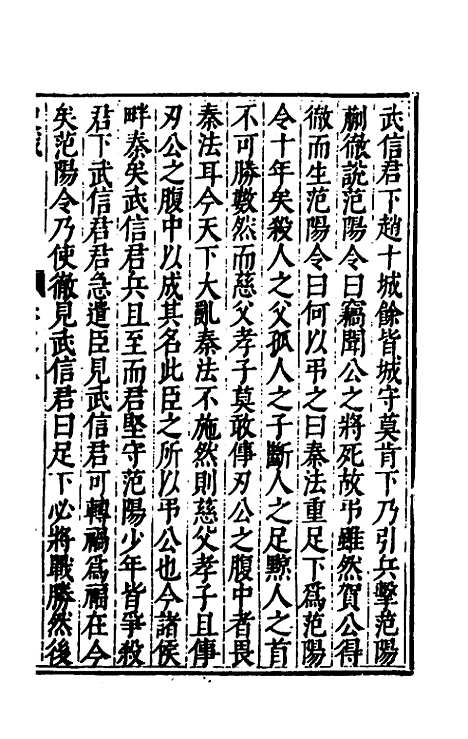 武信君下趙十城餘皆城守莫肯下乃引兵擊范陽
蒯徹說范陽令曰竊聞公之將死故弔雖然賀公得
徹而生范陽令曰何以弔之曰秦法重足下爲范陽
令十年矣殺人之父孤人之子斷人之足黥人之首
不可勝數然而慈父孝子莫敢傳刃公之腹中者畏
秦法耳今天下大亂秦法不施然則慈父孝子且傳
刃公之腹中以成其名此臣之所以弔公也今諸侯
畔秦矣武信君兵且至而君堅守范陽少年皆爭殺
君下武信君君急遣臣見武信君可轉禍爲福在今
矣范陽令乃使徹見武信君曰足下必將戰勝然後